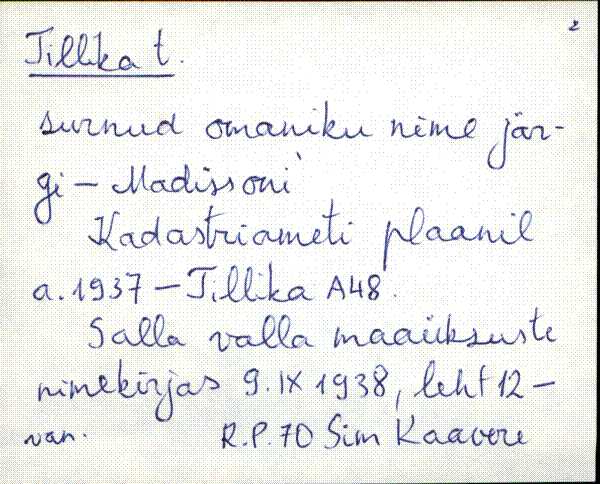 2
Tillika t.
surnud omaniku nime jär-
gi – Madissoni
Kadastriameti plaanil
a. 1937 – Tillika A48.
Salla valla maaüksuste
nimekirjas 9. IX 1938, leht 12 –
van. R.P. 70 Sim Kaavere